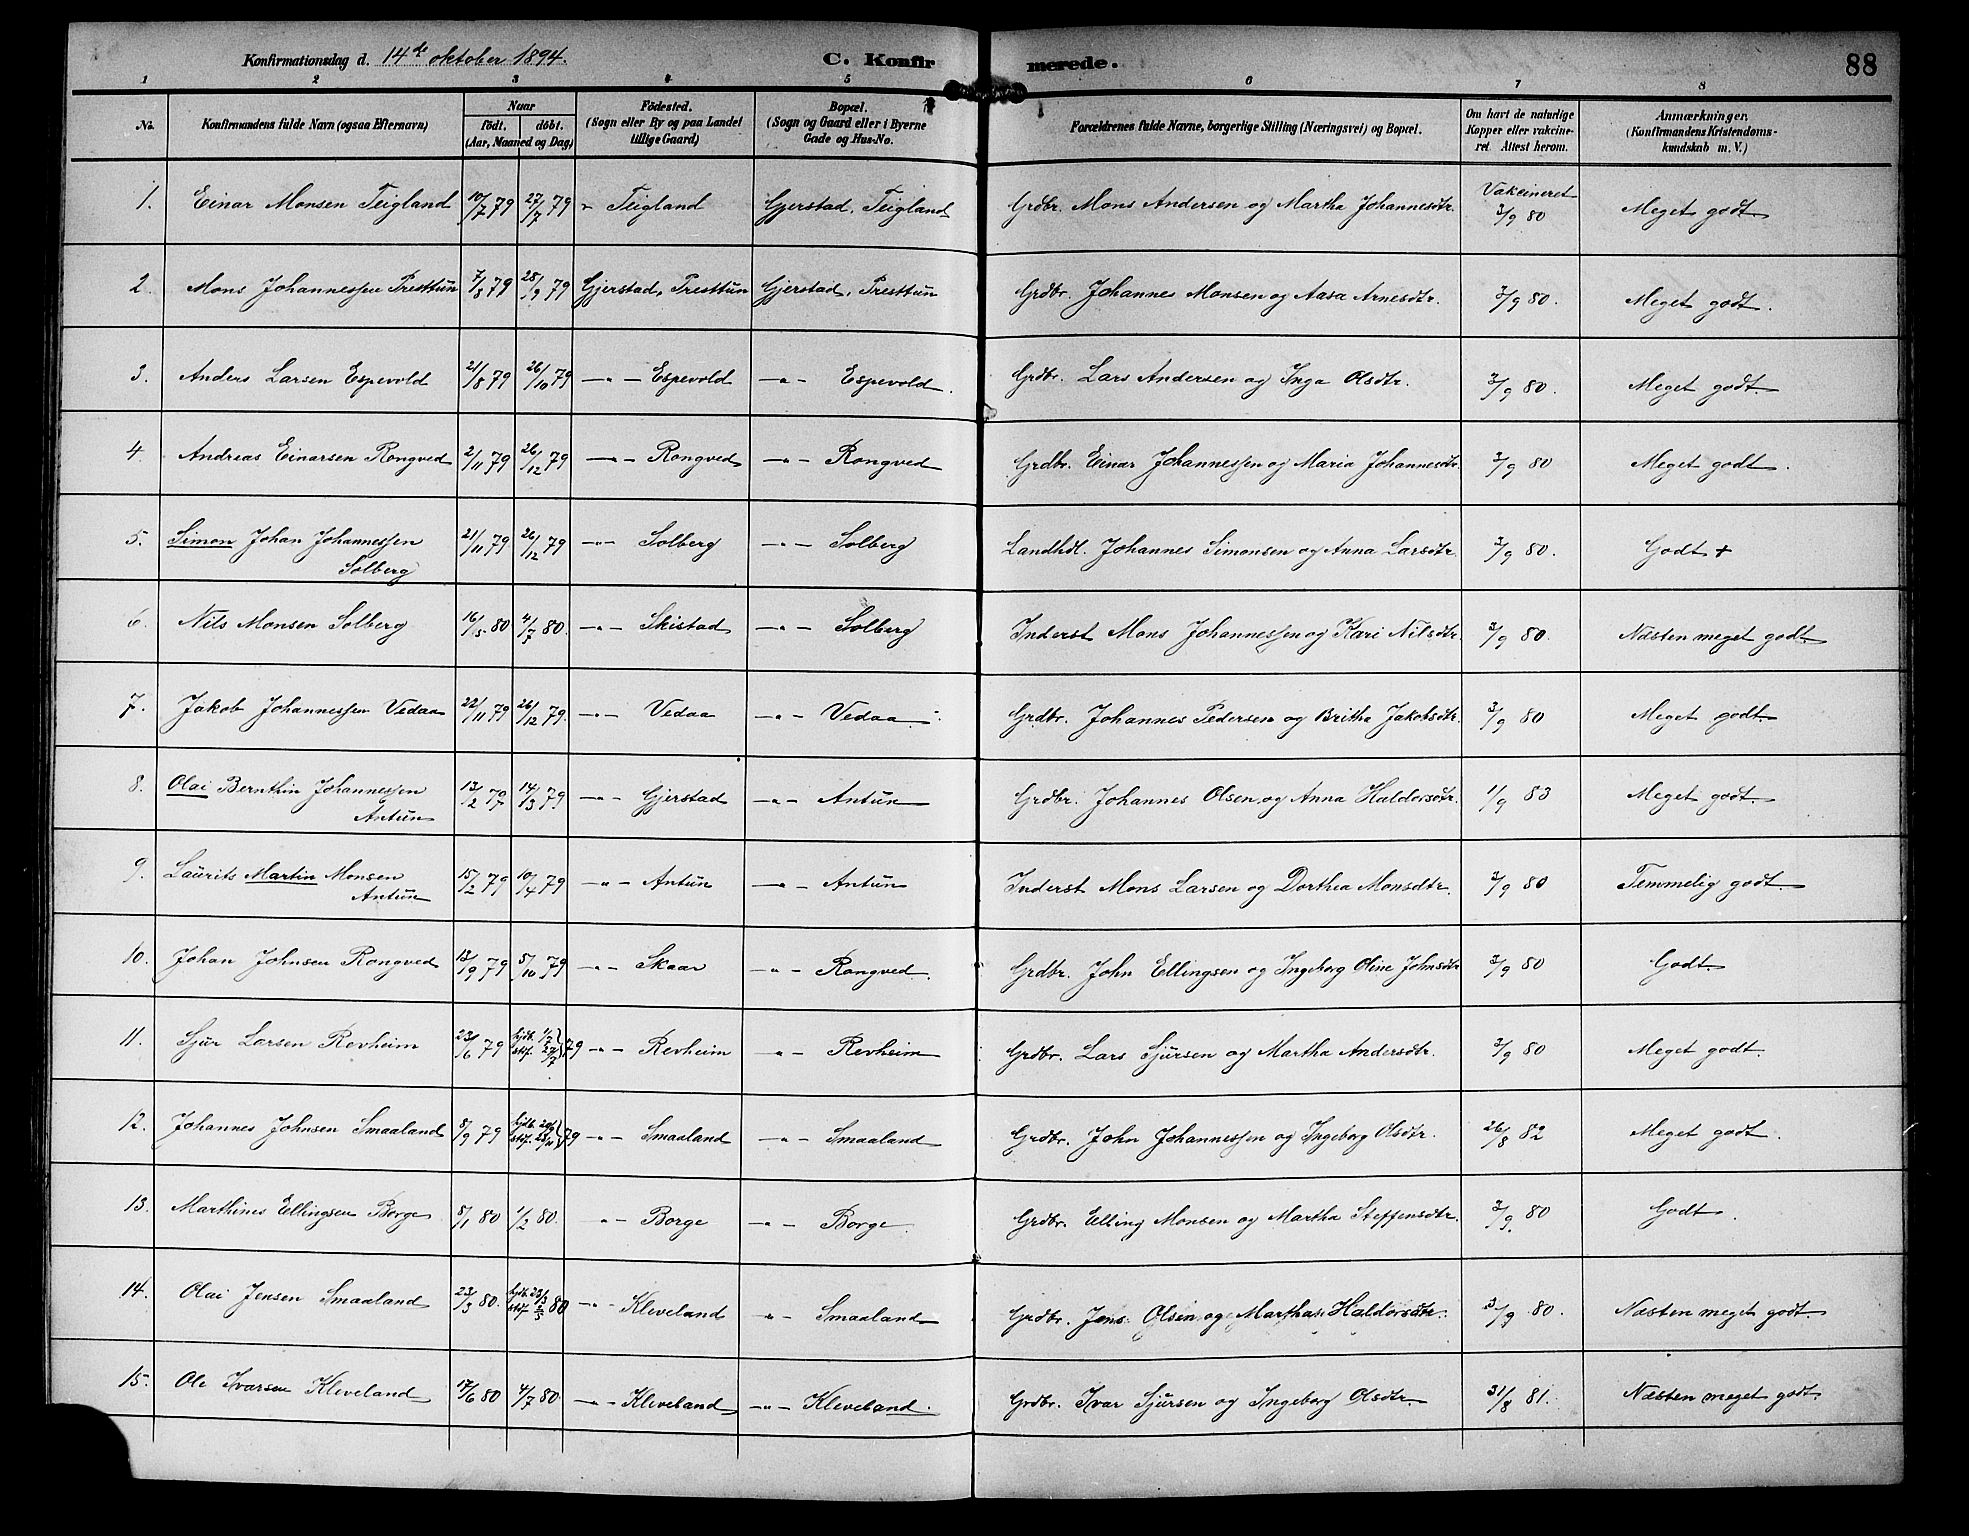 Konfirmationsdag d. 14de oktober 1894. C. Konfirmerede. 88
1 2 3 4 5 6 7 8
No. Konfirmandens fulde Navn (ogsaa Efternavn) Naar født. døbt. (Aar, Maaned og Dag) Fødested. (Sogn eller By og paa Landet tillige Gaard) Bopæl. (Sogn og Gaard eller i Byerne Gade og Hus-No. Forældrenes fulde Navne, borgerlige Stilling (Næringsvei) og Bopæl. Om havt de naturlige Kopper eller vakcineret. Attest herom. Anmærkninger. (Konfirmandens Kristendomskundskab m. V.)
1. Einar Monsen Teigland 10/7 79 27/7 79 " Teigland Gjerstad, Teigland Grdbr. Mons Andersen og Martha Johannesdtr. Vakcineret 3/9 80 Meget godt
2 Mons Johannessen Presttun 7/8 79 28/9 79 Gjerstad, Presttun Gjerstad, Presttun Grdbr. Johannes Monsen og Aasa Arnesdtr. 3/9 80. Meget godt.
3. Anders Larsen Espevold 21/8 79 26/10 79 —"— Espevold —"— Espevold. Grdbr. Lars Andersen og Inga Olsdtr. 3/9 80. Meget godt.
4 Andreas Einarsen Rongved 2/11 79 26/12 79 —"— Rongved —"— Rongved Grdbr. Einar Johannessen og Maria Johannesdtr. 3/9 80 Meget godt.
5. Simon Johan Johannessen 21/11 79 26/12 79 —"— Solberg —"— Solberg Landhdl. Johannes Simonsen og Anna Larsdtr. 3/9 80. Godt +
Solberg
6. Nils Monsen Solberg 16/5 80 4/7 80. —"— Skistad —"— Solberg Inderst Mons Johannessen og Kari Nilsdtr. 3/9 80. Næsten meget godt.
7. Jakob Johannessen Vedaa 22/11 79 26/12 79. —"— Vedaa —"— Vedaa Grdbr. Johannes Pedersen og Britha Jakobsdtr. 3/9 80 Meget godt.
8. Olai Bernthin Johannessen 13/2 79 14/3 79 —"— Gjerstad —"— Antun Grdbr. Johannes Olsen og Anna Haldorsdtr. 1/9 83 Meget godt.
Antun
9. Laurits Martin Monsen 15/2 79 10/4 79 —"— Antun —"— Antun Inderst Mons Larsen og Dorthea Monsdtr. 3/9 80 Temmelig godt.
Antun
10. Johan Johnsen Rongved 13/9 79 5/10 79 —"— Skaar —"— Rongved. Grdbr. John Ellingsen og Ingeborg Oline Johnsdtr 3/9 80 Godt.
11. Sjur Larsen Revheim 23/6 79 hjdt. 1/7 stf. 27/7 } 79 —"— Revheim —"— Revheim Grdbr. Lars Sjursen og Martha Andersdtr. 3/9 80 Meget godt.
12. Johannes Johnsen Smaaland 8/9 79 hjdt. stf. } 79 —"— Smaaland —"— Smaaland Grdbr. John Johannessen og Ingeborg Olsdtr. 26/8 82 Meget godt.
13. Marthines Ellingsen Borge 5/1 80 1/2 80. "— Borge —"— Borge. Grdbr. Elling Monsen og Martha Steffensdtr. 3/9. 80 Godt.
14. Olai Jensen Smaaland 23/3 80. hjdt. 23/3 stf. 2/5 80 —"— Kleveland "— Smaaland Grdbr. Jens Olsen og Martha Haldorsdtr. 3/9 80. Næsten meget godt.
15. Ole Ivarsen Kleveland 17/6 80 4/7 80 —"— Kleveland —"— Kleveland. Grdbr. Ivar Sjursen og Ingeborg Olsdtr. 31/8 81. Næsten meget godt.